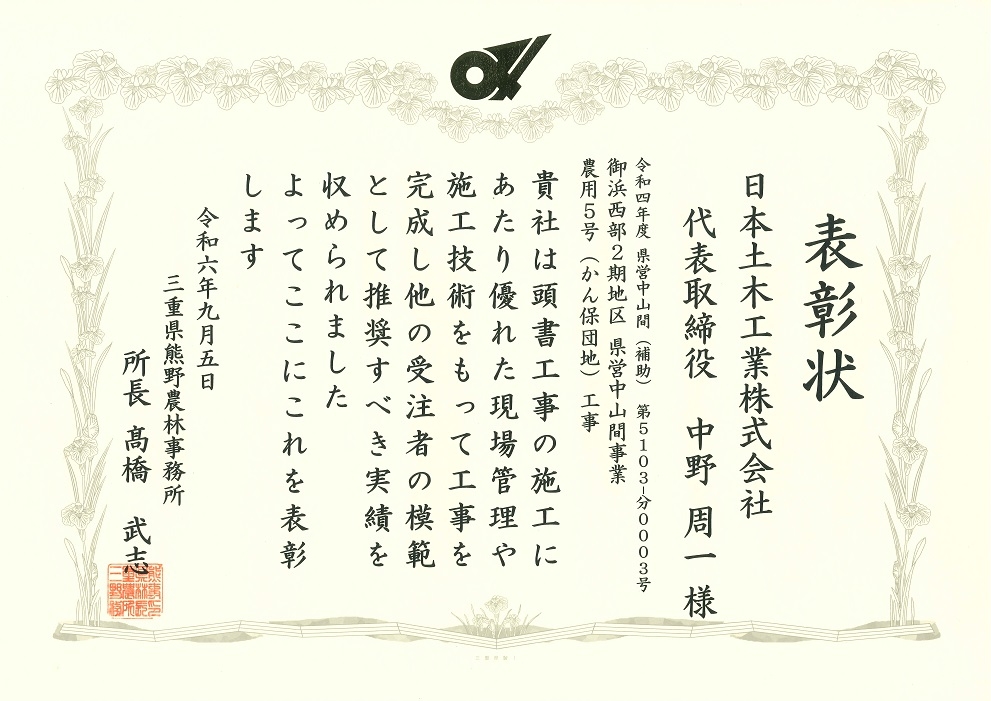 表彰状
日本土木工業株式会社
代表取締役 中野 周一 様
令和四年度 県営中山間（補助） 第５１０３−分０００３号
御浜西部２期地区 県営中山間事業
農用５号（かん保団地）工事
貴社は頭書工事の施工に
あたり優れた現場管理や
施工技術をもって工事を
完成し他の受注者の模範
として推奨すべき実績を
収められました
よってここにこれを表彰
します
令和六年九月五日
三重県熊野農林事務所
所長 髙橋 武志